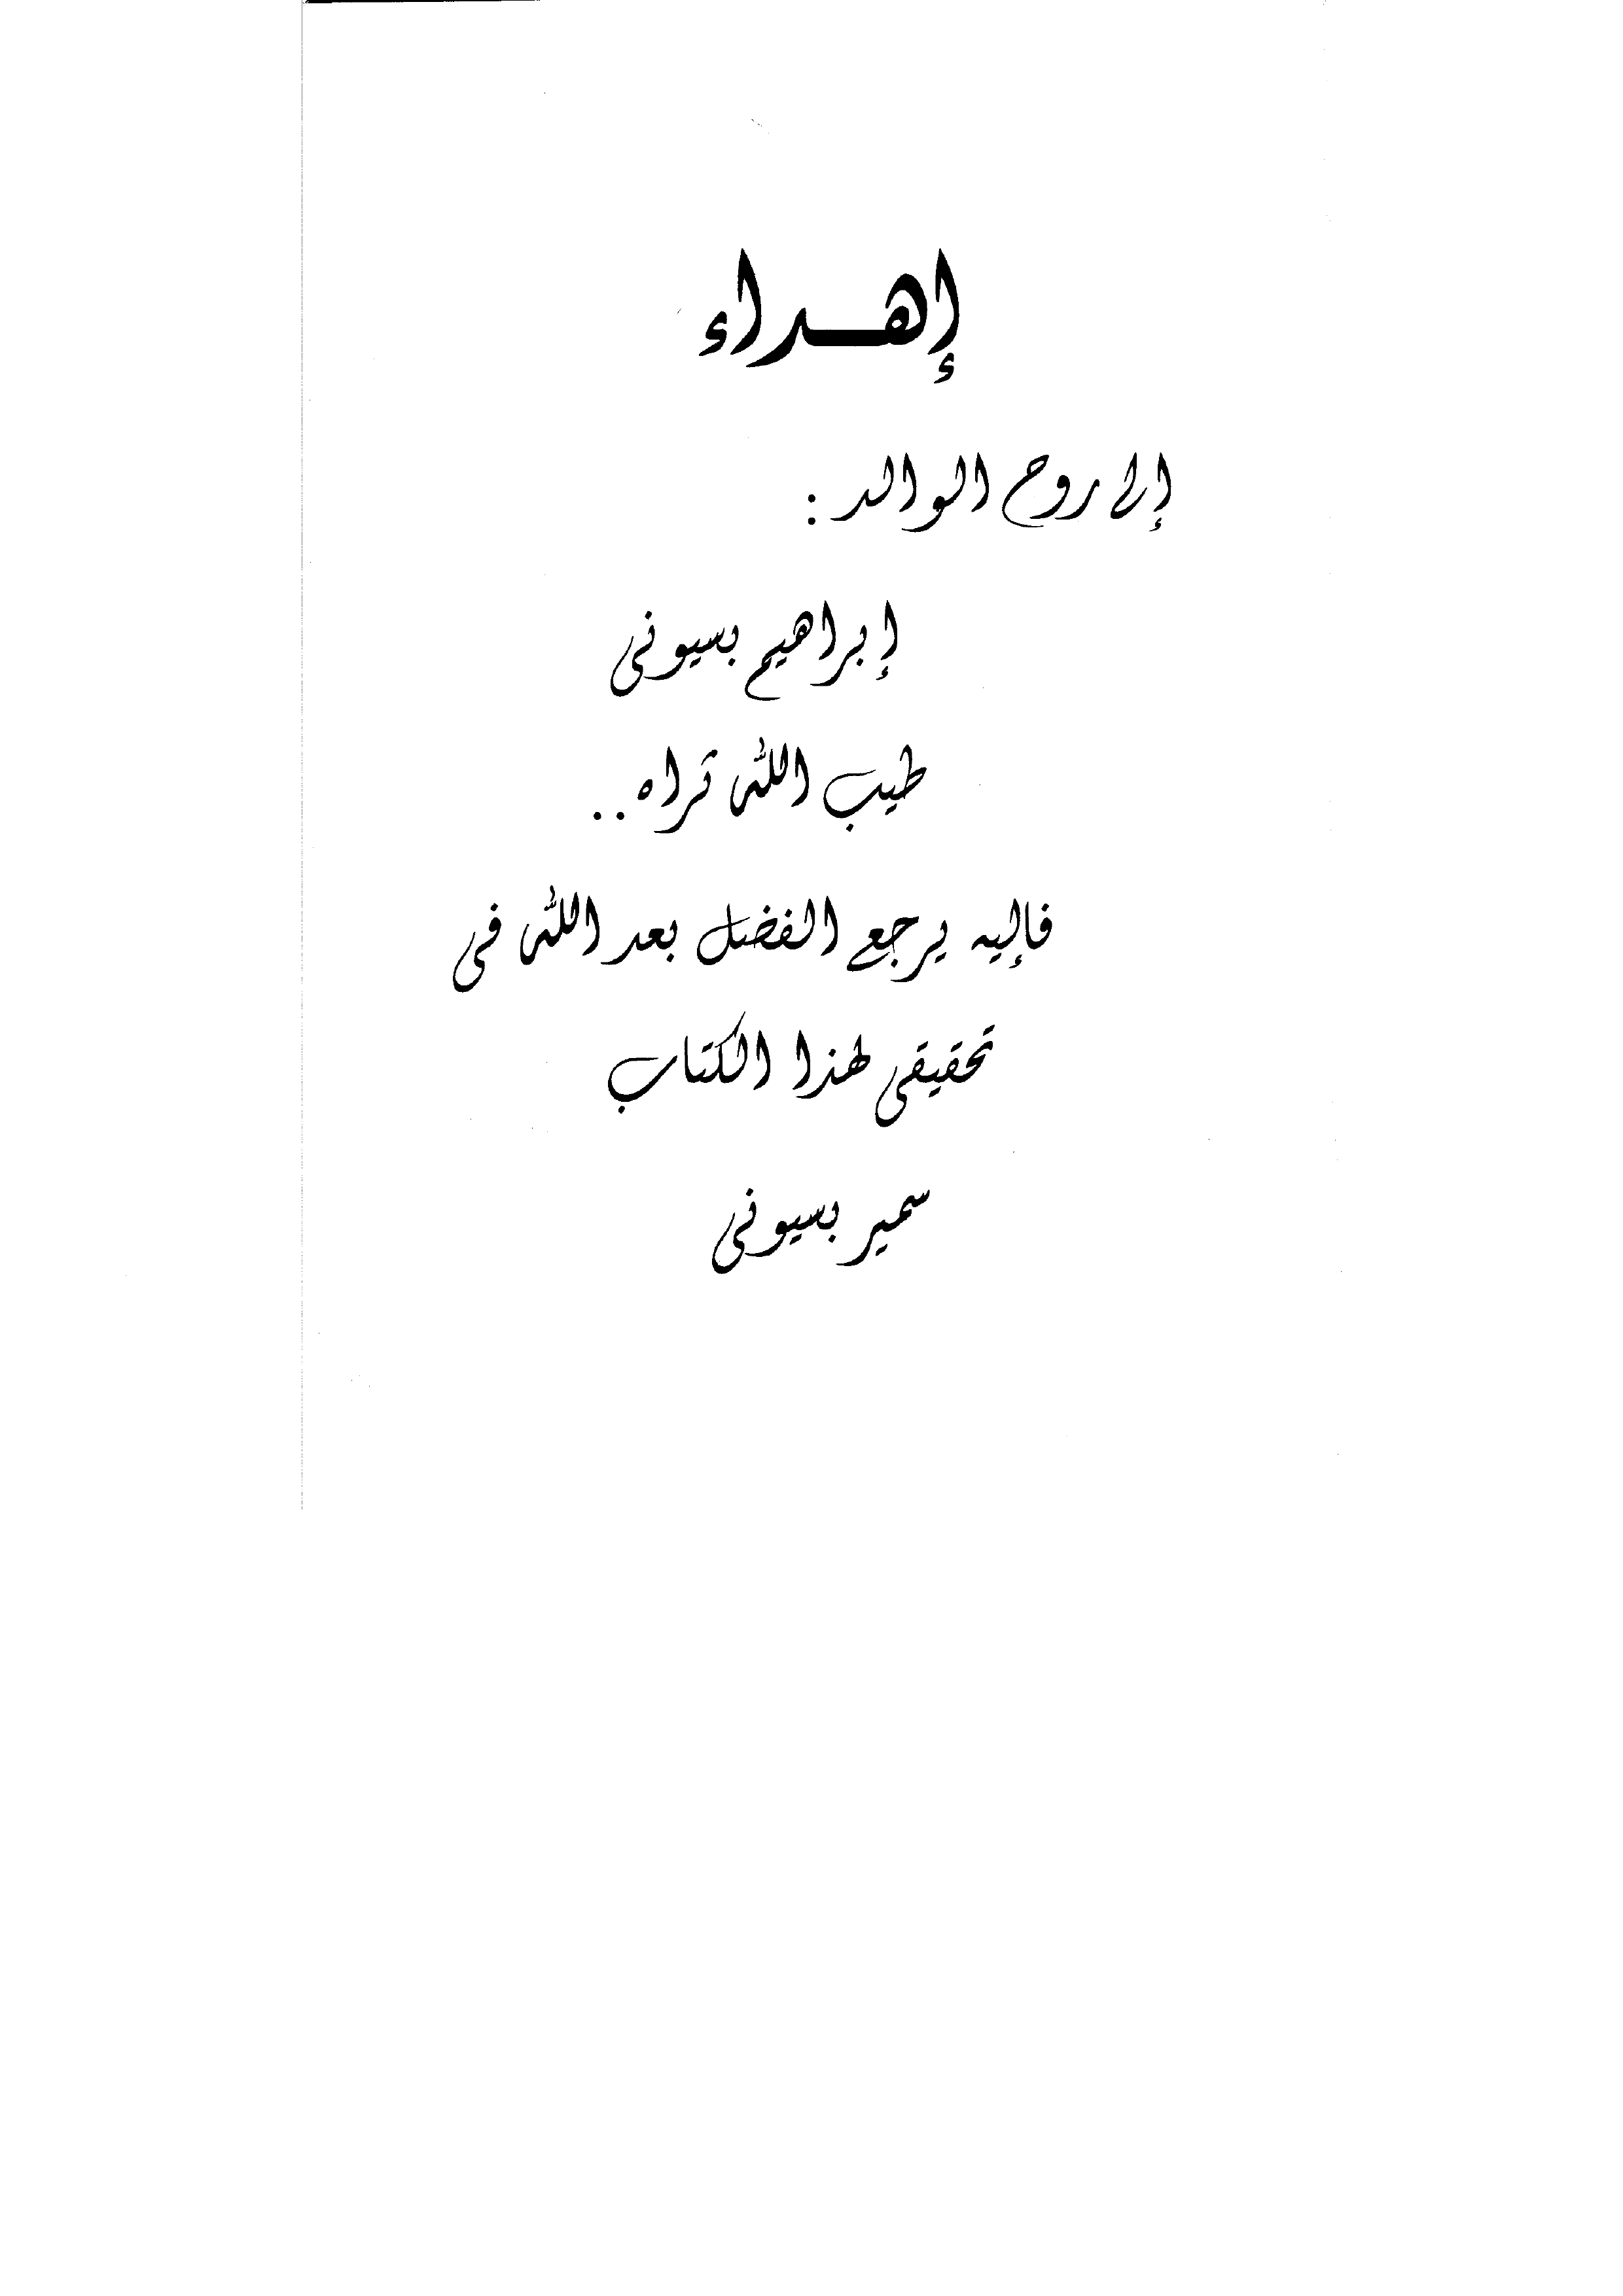 إهداء
إلى روح الوالد :
إبراهيم بسيونى
طيب الله ثراه ..
فإليه يرجع الفضل بعد الله فى
تحقيقى لهذا الكتاب
سمير بسيونى